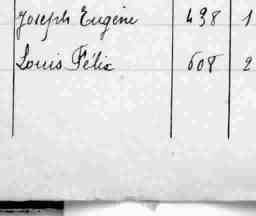 Joseph Eugène 438 1
Louis Félix 608 2